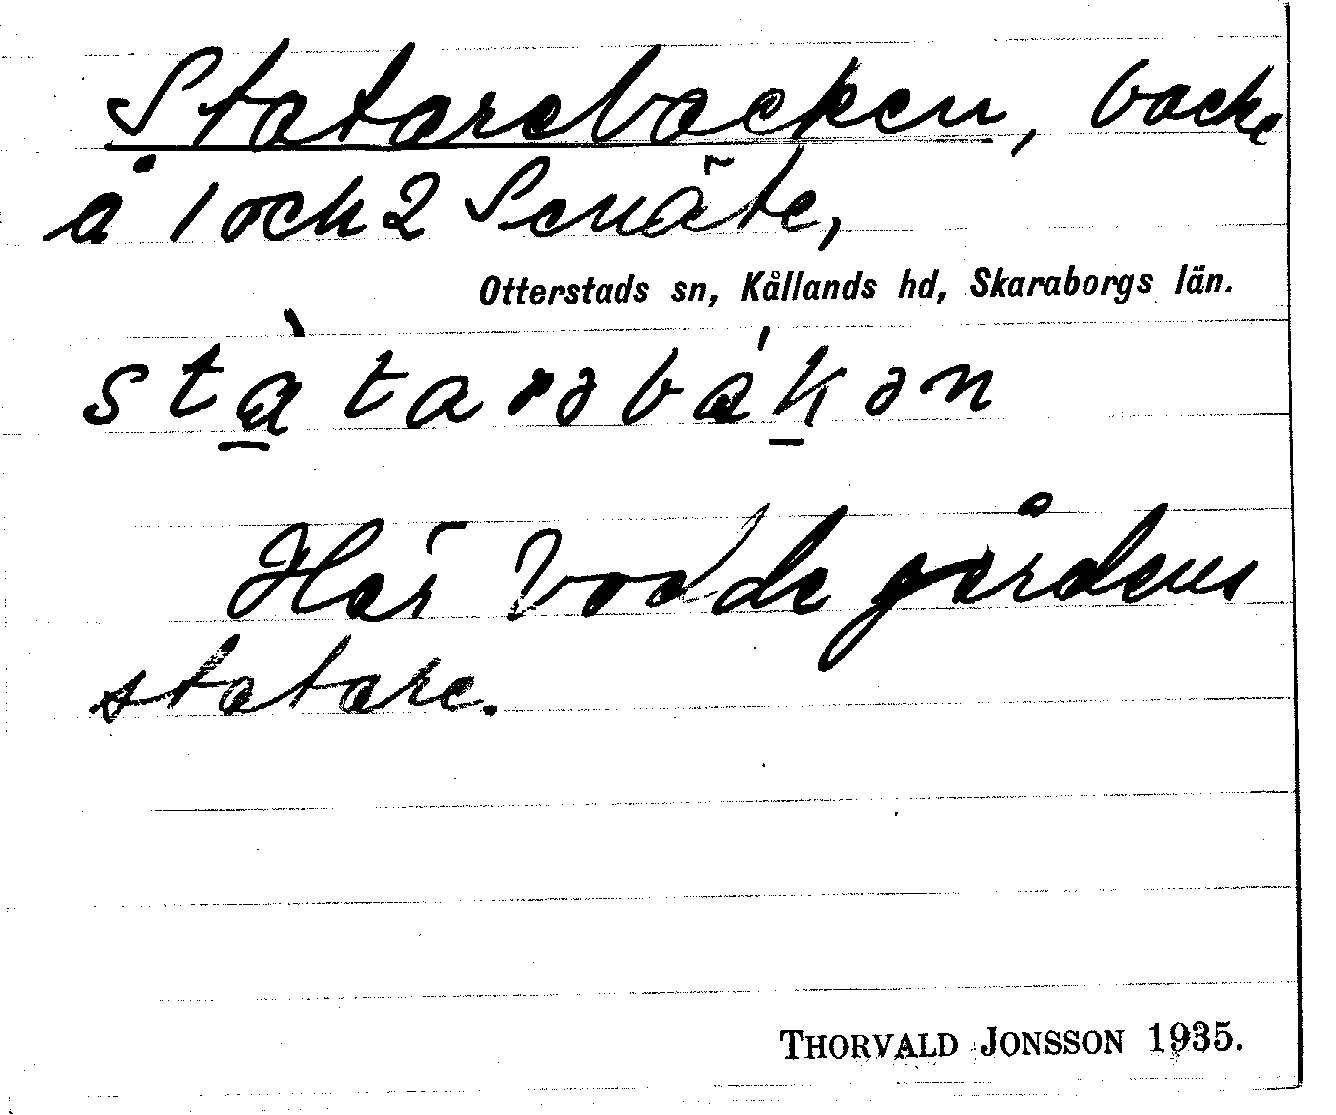 Statarebacken, backe
å 1 och 2 Senäte,
Otterstads sn, Kållands hd, Skaraborgs län.
stàtarəbákən
Här bodde gårdens
statare.
THORVALD JONSSON 1935.